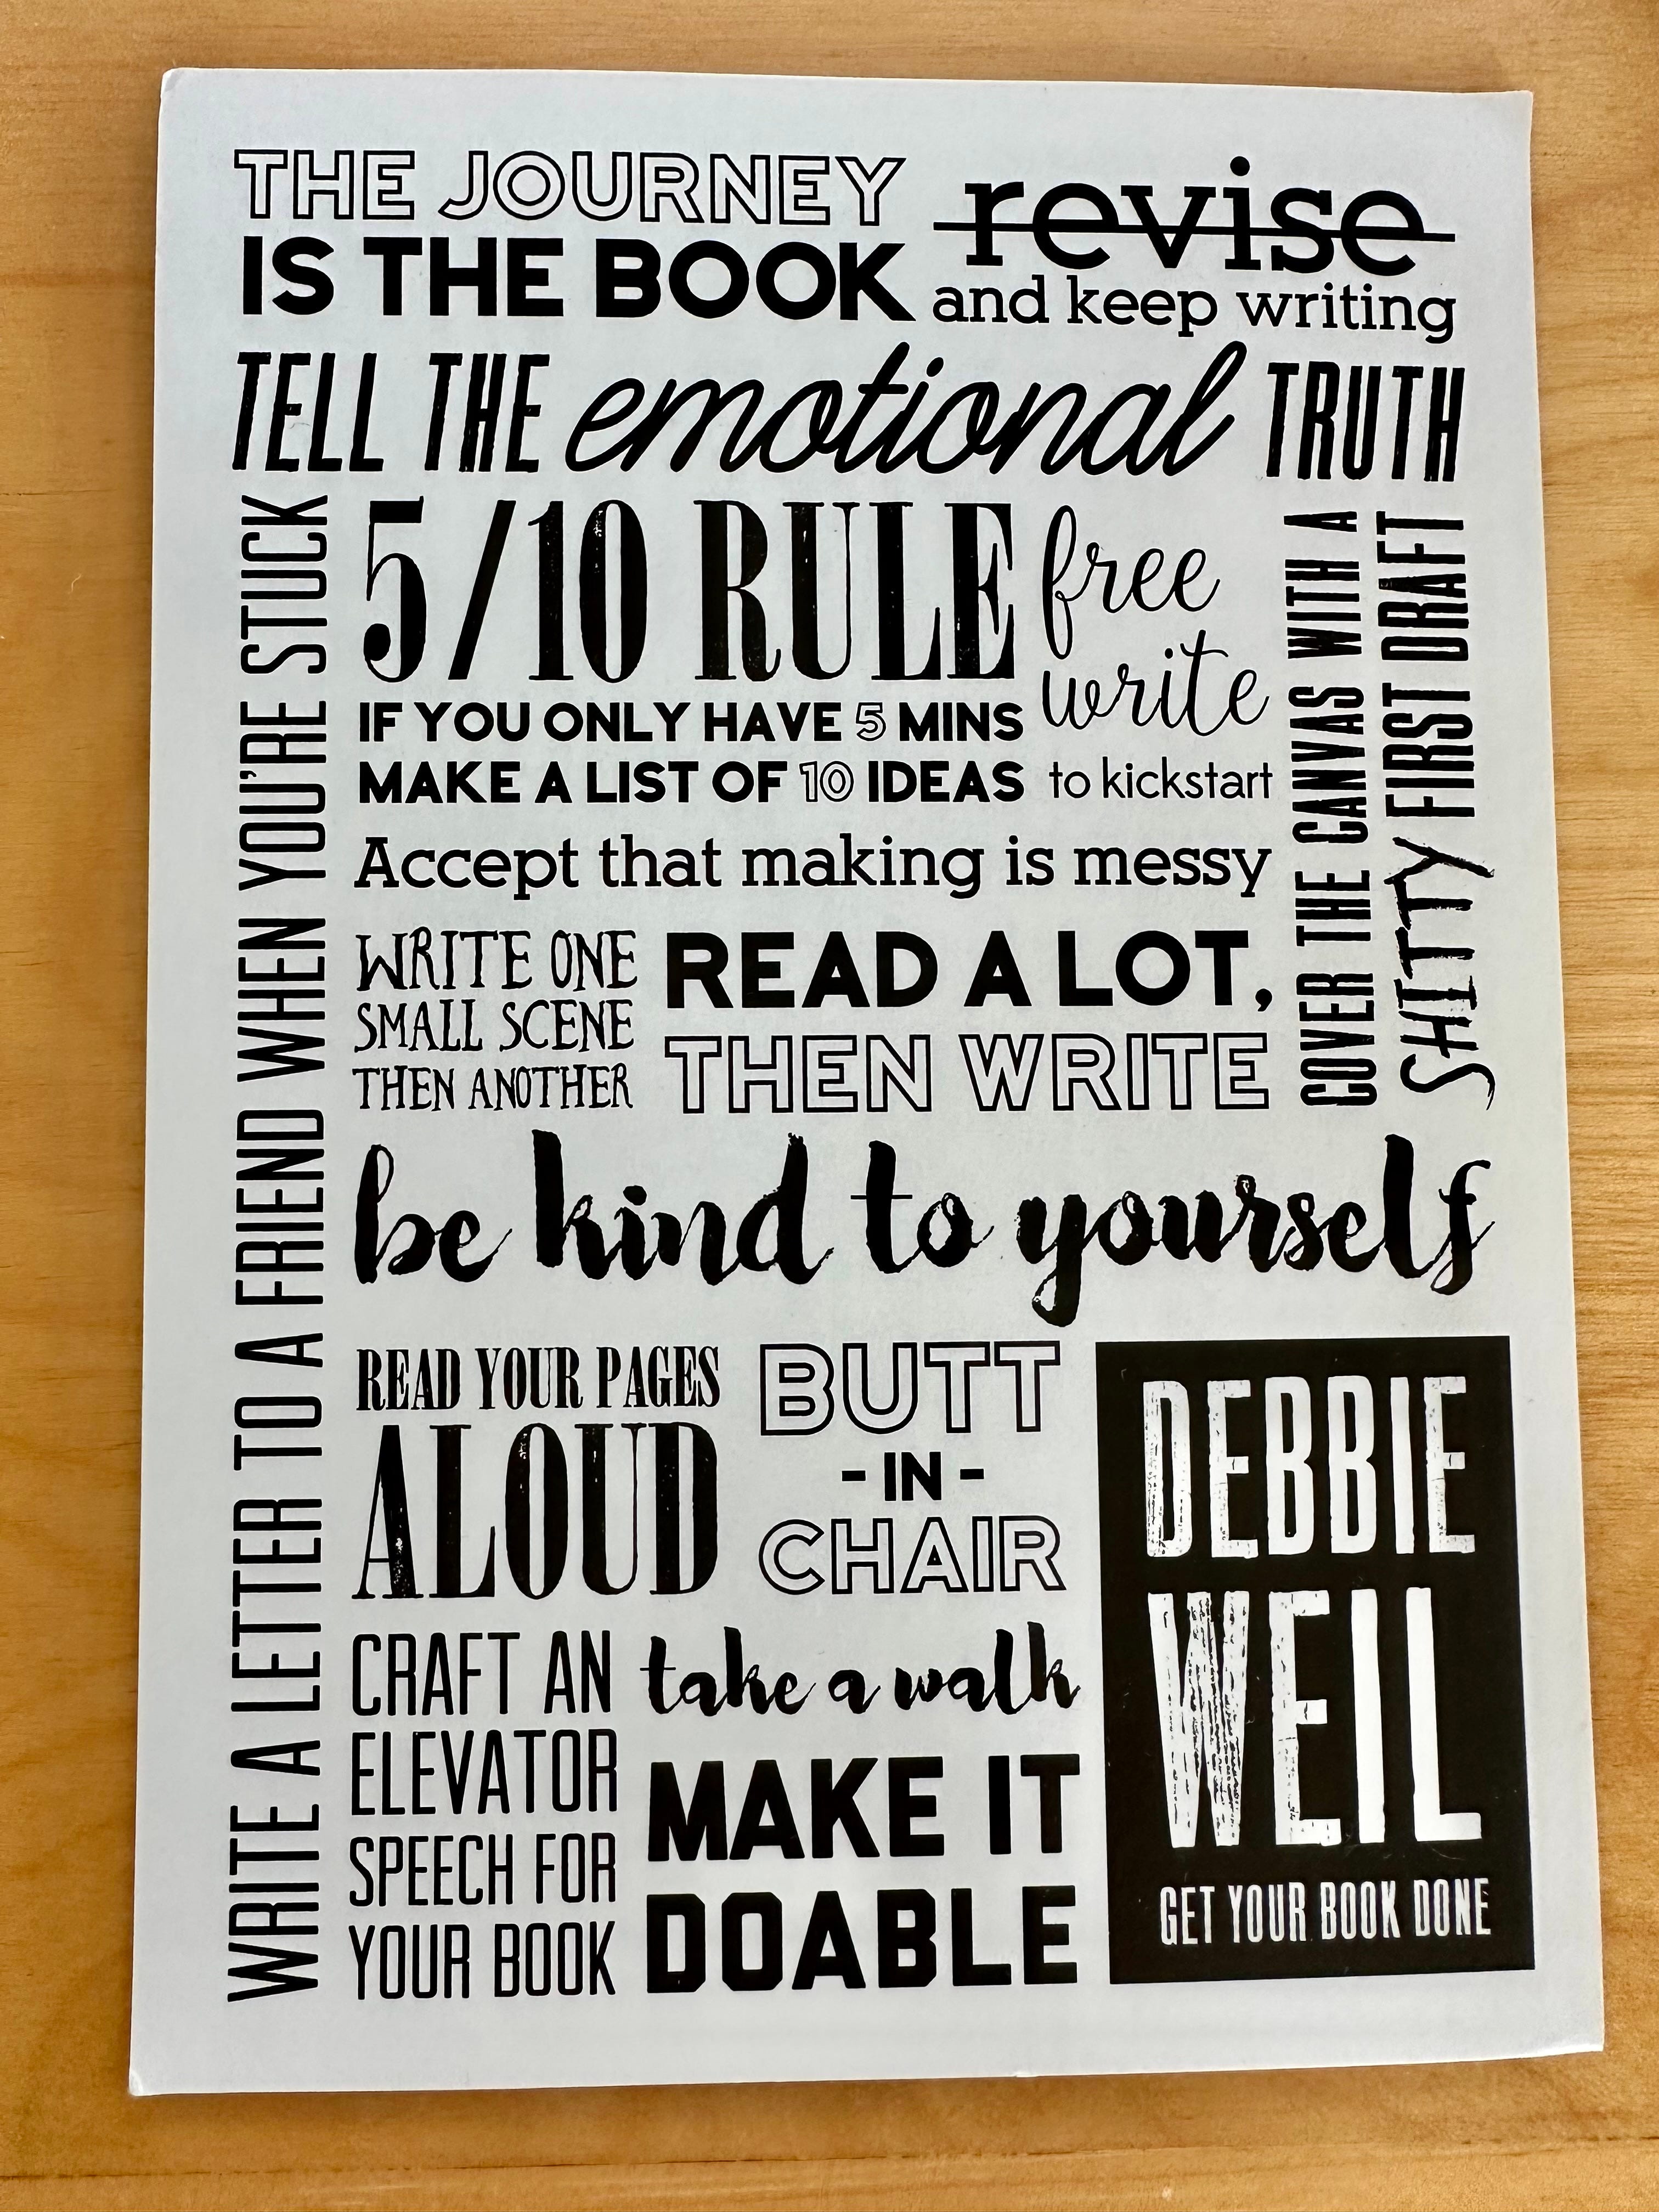 THE JOURNEY
IS THE BOOK
revise
and keep writing
TELL THE emotional TRUTH
WRITE A LETTER TO A FRIEND WHEN YOU'RE STUCK
5/10 RULE
IF YOU ONLY HAVE 5 MINS
MAKE A LIST OF 10 IDEAS
free
write
to kickstart
COVER THE CANVAS WITH A
SHITTY FIRST DRAFT
Accept that making is messy
WRITE ONE
SMALL SCENE
THEN ANOTHER
READ A LOT,
THEN WRITE
be kind to yourself
READ YOUR PAGES
ALOUD
BUTT
- IN -
CHAIR
CRAFT AN
ELEVATOR
SPEECH FOR
YOUR BOOK
take a walk
MAKE IT
DOABLE
DEBBIE
WEIL
GET YOUR BOOK DONE